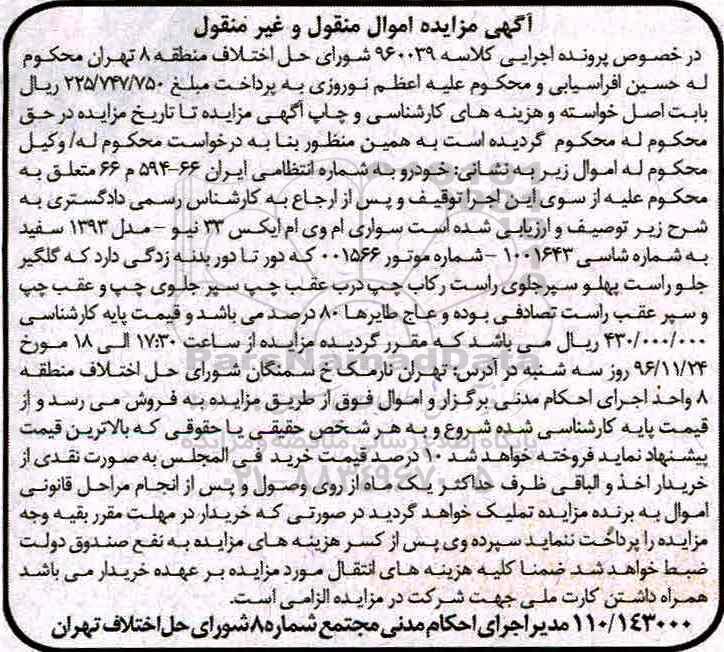 آگهی مزایده اموال منقول و غیر منقول
در خصوص پرونده اجرایی کلاسه ۹۶۰۰۳۹ شورای حل اختلاف منطقه ۸ تهران محکوم
له حسین افراسیابی و محکوم علیه اعظم نوروزی به پرداخت مبلغ ۲۲۵/۷۴۷/۷۵۰ ریال
بابت اصل خواسته و هزینه های کارشناسی و چاپ آگهی مزایده تا تاریخ مزایده در حق
محکوم له محکوم گردیده است به همین منظور بنا به درخواست محکوم له/ وکیل
محکوم له اموال زیر به نشانی: خودرو به شماره انتظامی ایران ۶۶-۵۹۴ م ۶۶ متعلق به
محکوم علیه از سوی این اجرا توقیف و پس از ارجاع به کارشناس رسمی دادگستری به
شرح زیر توصیف و ارزیابی شده است سواری ام وی ام ایکس ۳۳ نیو - مدل ۱۳۹۳ سفید
به شماره شاسی ۱۰۰۱۶۴۳ - شماره موتور ۰۰۱۵۶۶ که دور تا دور بدنه زدگی دارد که گلگیر
جلو راست پهلو سپرجلوی راست رکاب چپ درب عقب چپ سپر جلوی چپ و عقب چپ
و سپر عقب راست تصادفی بوده و عاج طایرها ۸۰ درصد می باشد و قیمت پایه کارشناسی
۴۳۰/۰۰۰/۰۰۰ ریال می باشد که مقرر گردیده مزایده از ساعت ۱۷:۳۰ الی ۱۸ مورخ
۹۶/۱۱/۲۴ روز سه شنبه در آدرس: تهران نارمک خ سمنگان شورای حل اختلاف منطقه
۸ واحد اجرای احکام مدنی برگزار و اموال فوق از طریق مزایده به فروش می رسد و از
قیمت پایه کارشناسی شده شروع و به هر شخص حقیقی یا حقوقی که بالاترین قیمت
پیشنهاد نماید فروخته خواهد شد ۱۰ درصد قیمت خرید فی المجلس به صورت نقدی از
خریدار اخذ و الباقی ظرف حداکثر یک ماه از روی وصول و پس از انجام مراحل قانونی
اموال به برنده مزایده تملیک خواهد گردید در صورتی که خریدار در مهلت مقرر بقیه وجه
مزایده را پرداخت ننماید سپرده وی پس از کسر هزینه های مزایده به نفع صندوق دولت
ضبط خواهد شد ضمنا کلیه هزینه های انتقال مورد مزایده بر عهده خریدار می باشد
همراه داشتن کارت ملی جهت شرکت در مزایده الزامی است.
۱۱۰/۱۴۳۰۰۰ مدیر اجرای احکام مدنی مجتمع شماره ۸ شورای حل اختلاف تهران